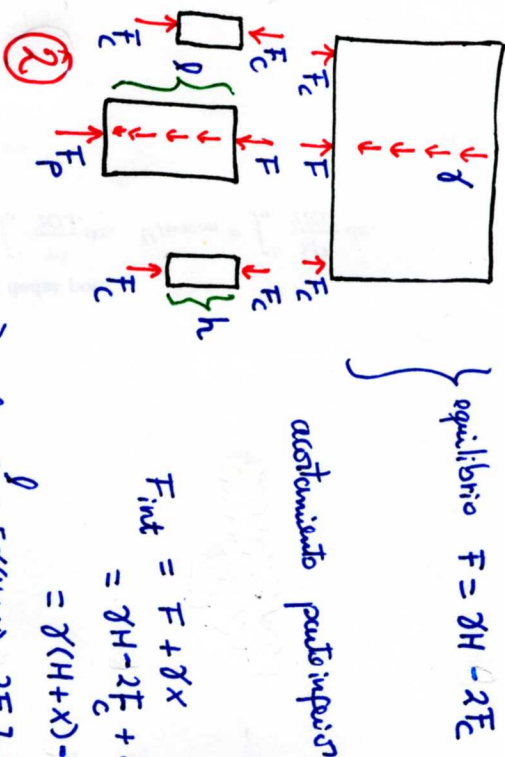 γ
F_c F F_c
F_c F F_c
ℓ h
F_c F_p F_c
2
equilibrio F = γH - 2F_c
acortamiento parte inferior
F_int = F + γx
= γH - 2F_c +
= γ(H+x) -